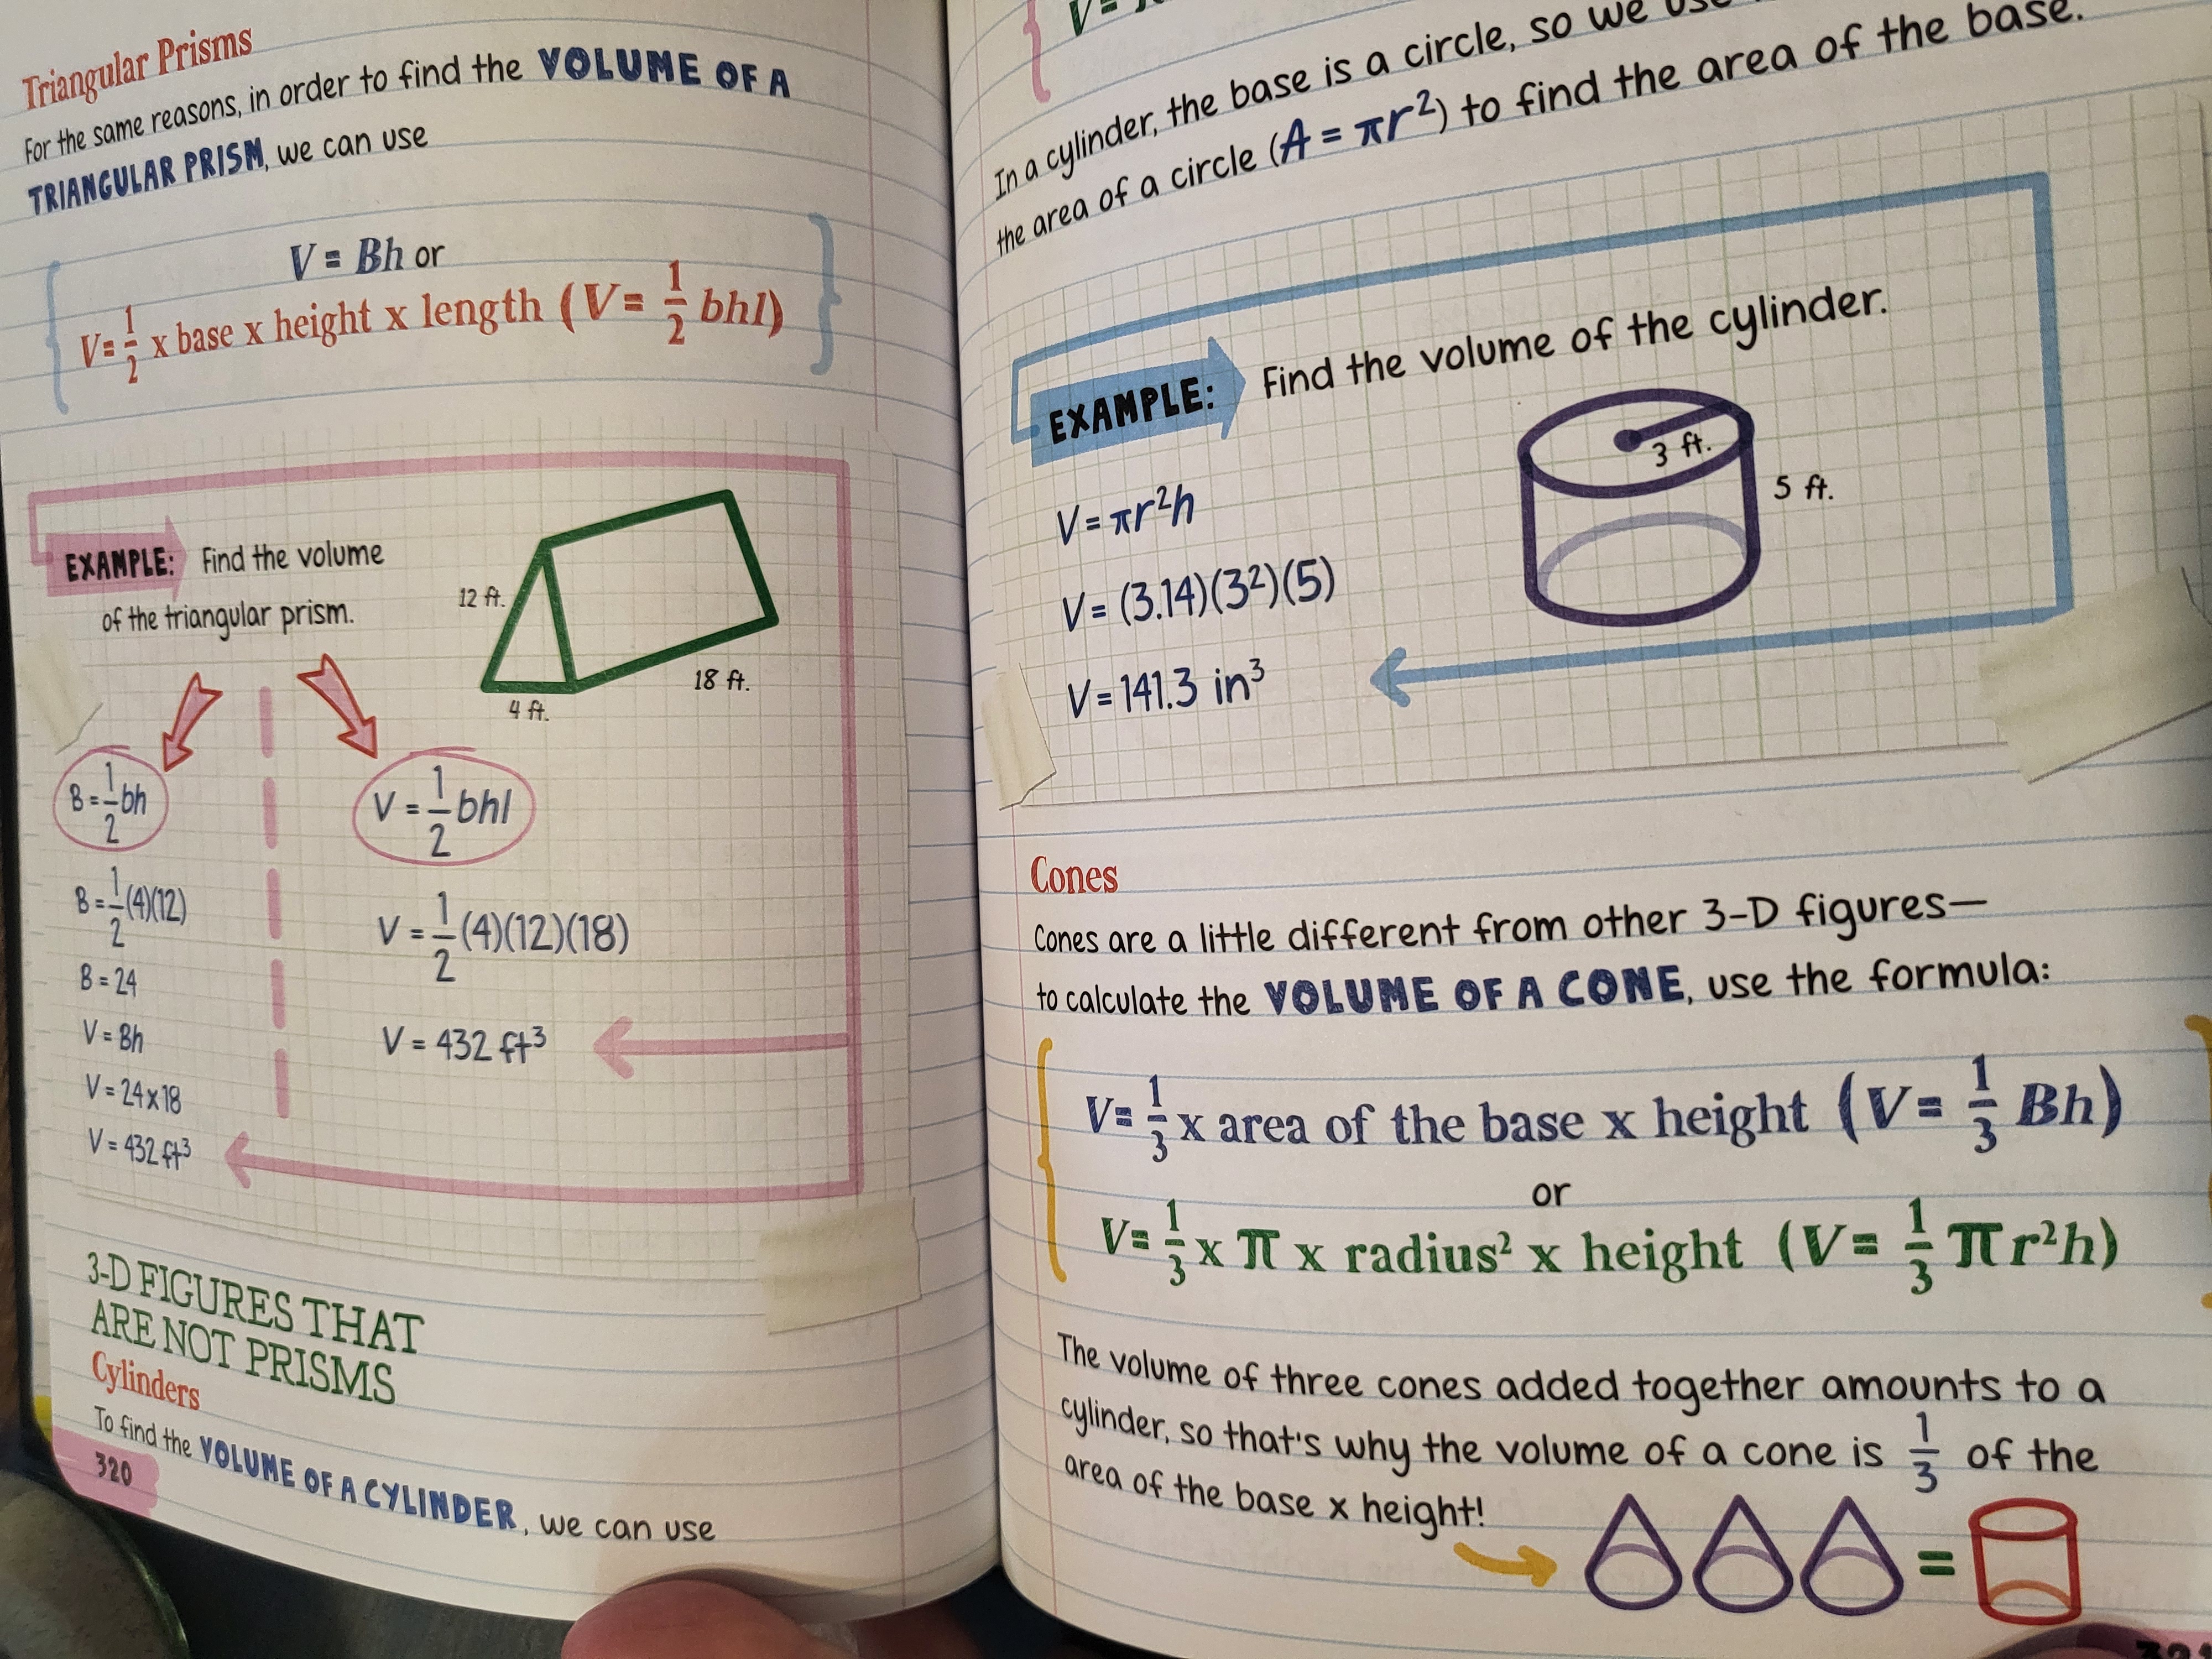 Triangular Prisms
For the same reasons, in order to find the VOLUME OF A
TRIANGULAR PRISM, we can use
V = Bh or
V = 1/2 x base x height x length (V = 1/2 bhl)
EXAMPLE: Find the volume
of the triangular prism.
12 ft.
18 ft.
4 ft.
B = 1/2 bh
B = 1/2 (4)(12)
B = 24
V = Bh
V = 24 x 18
V = 432 ft³
V = 1/2 bhl
V = 1/2 (4)(12)(18)
V = 432 ft³
3-D FIGURES THAT
ARE NOT PRISMS
Cylinders
To find the VOLUME OF A CYLINDER, we can use
320
In a cylinder, the base is a circle, so we
the area of a circle (A = πr²) to find the area of the base.
EXAMPLE: Find the volume of the cylinder.
3 ft.
5 ft.
V = πr²h
V = (3.14)(3²)(5)
V = 141.3 in³
Cones
Cones are a little different from other 3-D figures—
to calculate the VOLUME OF A CONE, use the formula:
V = 1/3 x area of the base x height (V = 1/3 Bh)
or
V = 1/3 x π x radius² x height (V = 1/3 πr²h)
The volume of three cones added together amounts to a
cylinder, so that's why the volume of a cone is 1/3 of the
area of the base x height!
=